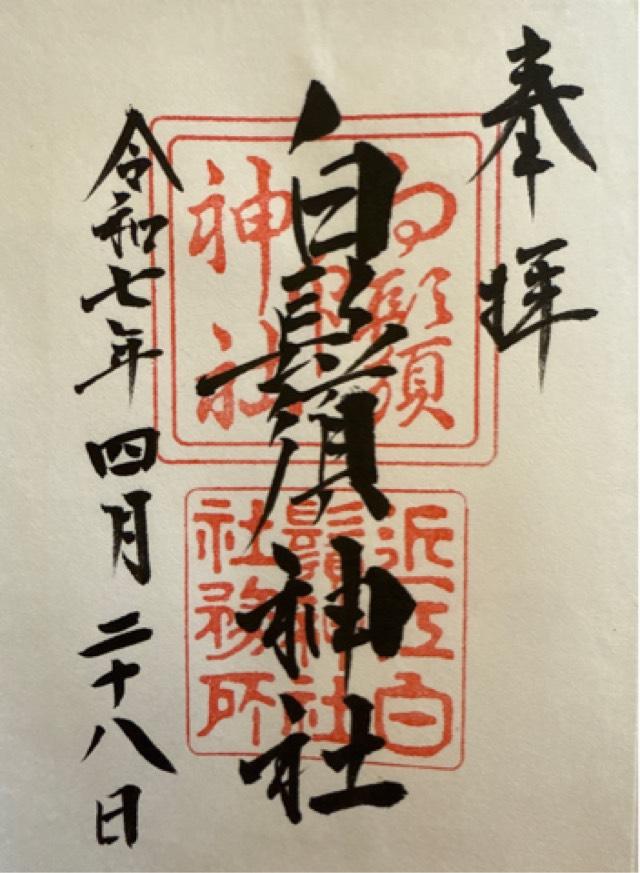 奉拝
白鬚神社
令和七年四月二十八日
白鬚
神社
近江白
鬚神社
社務所